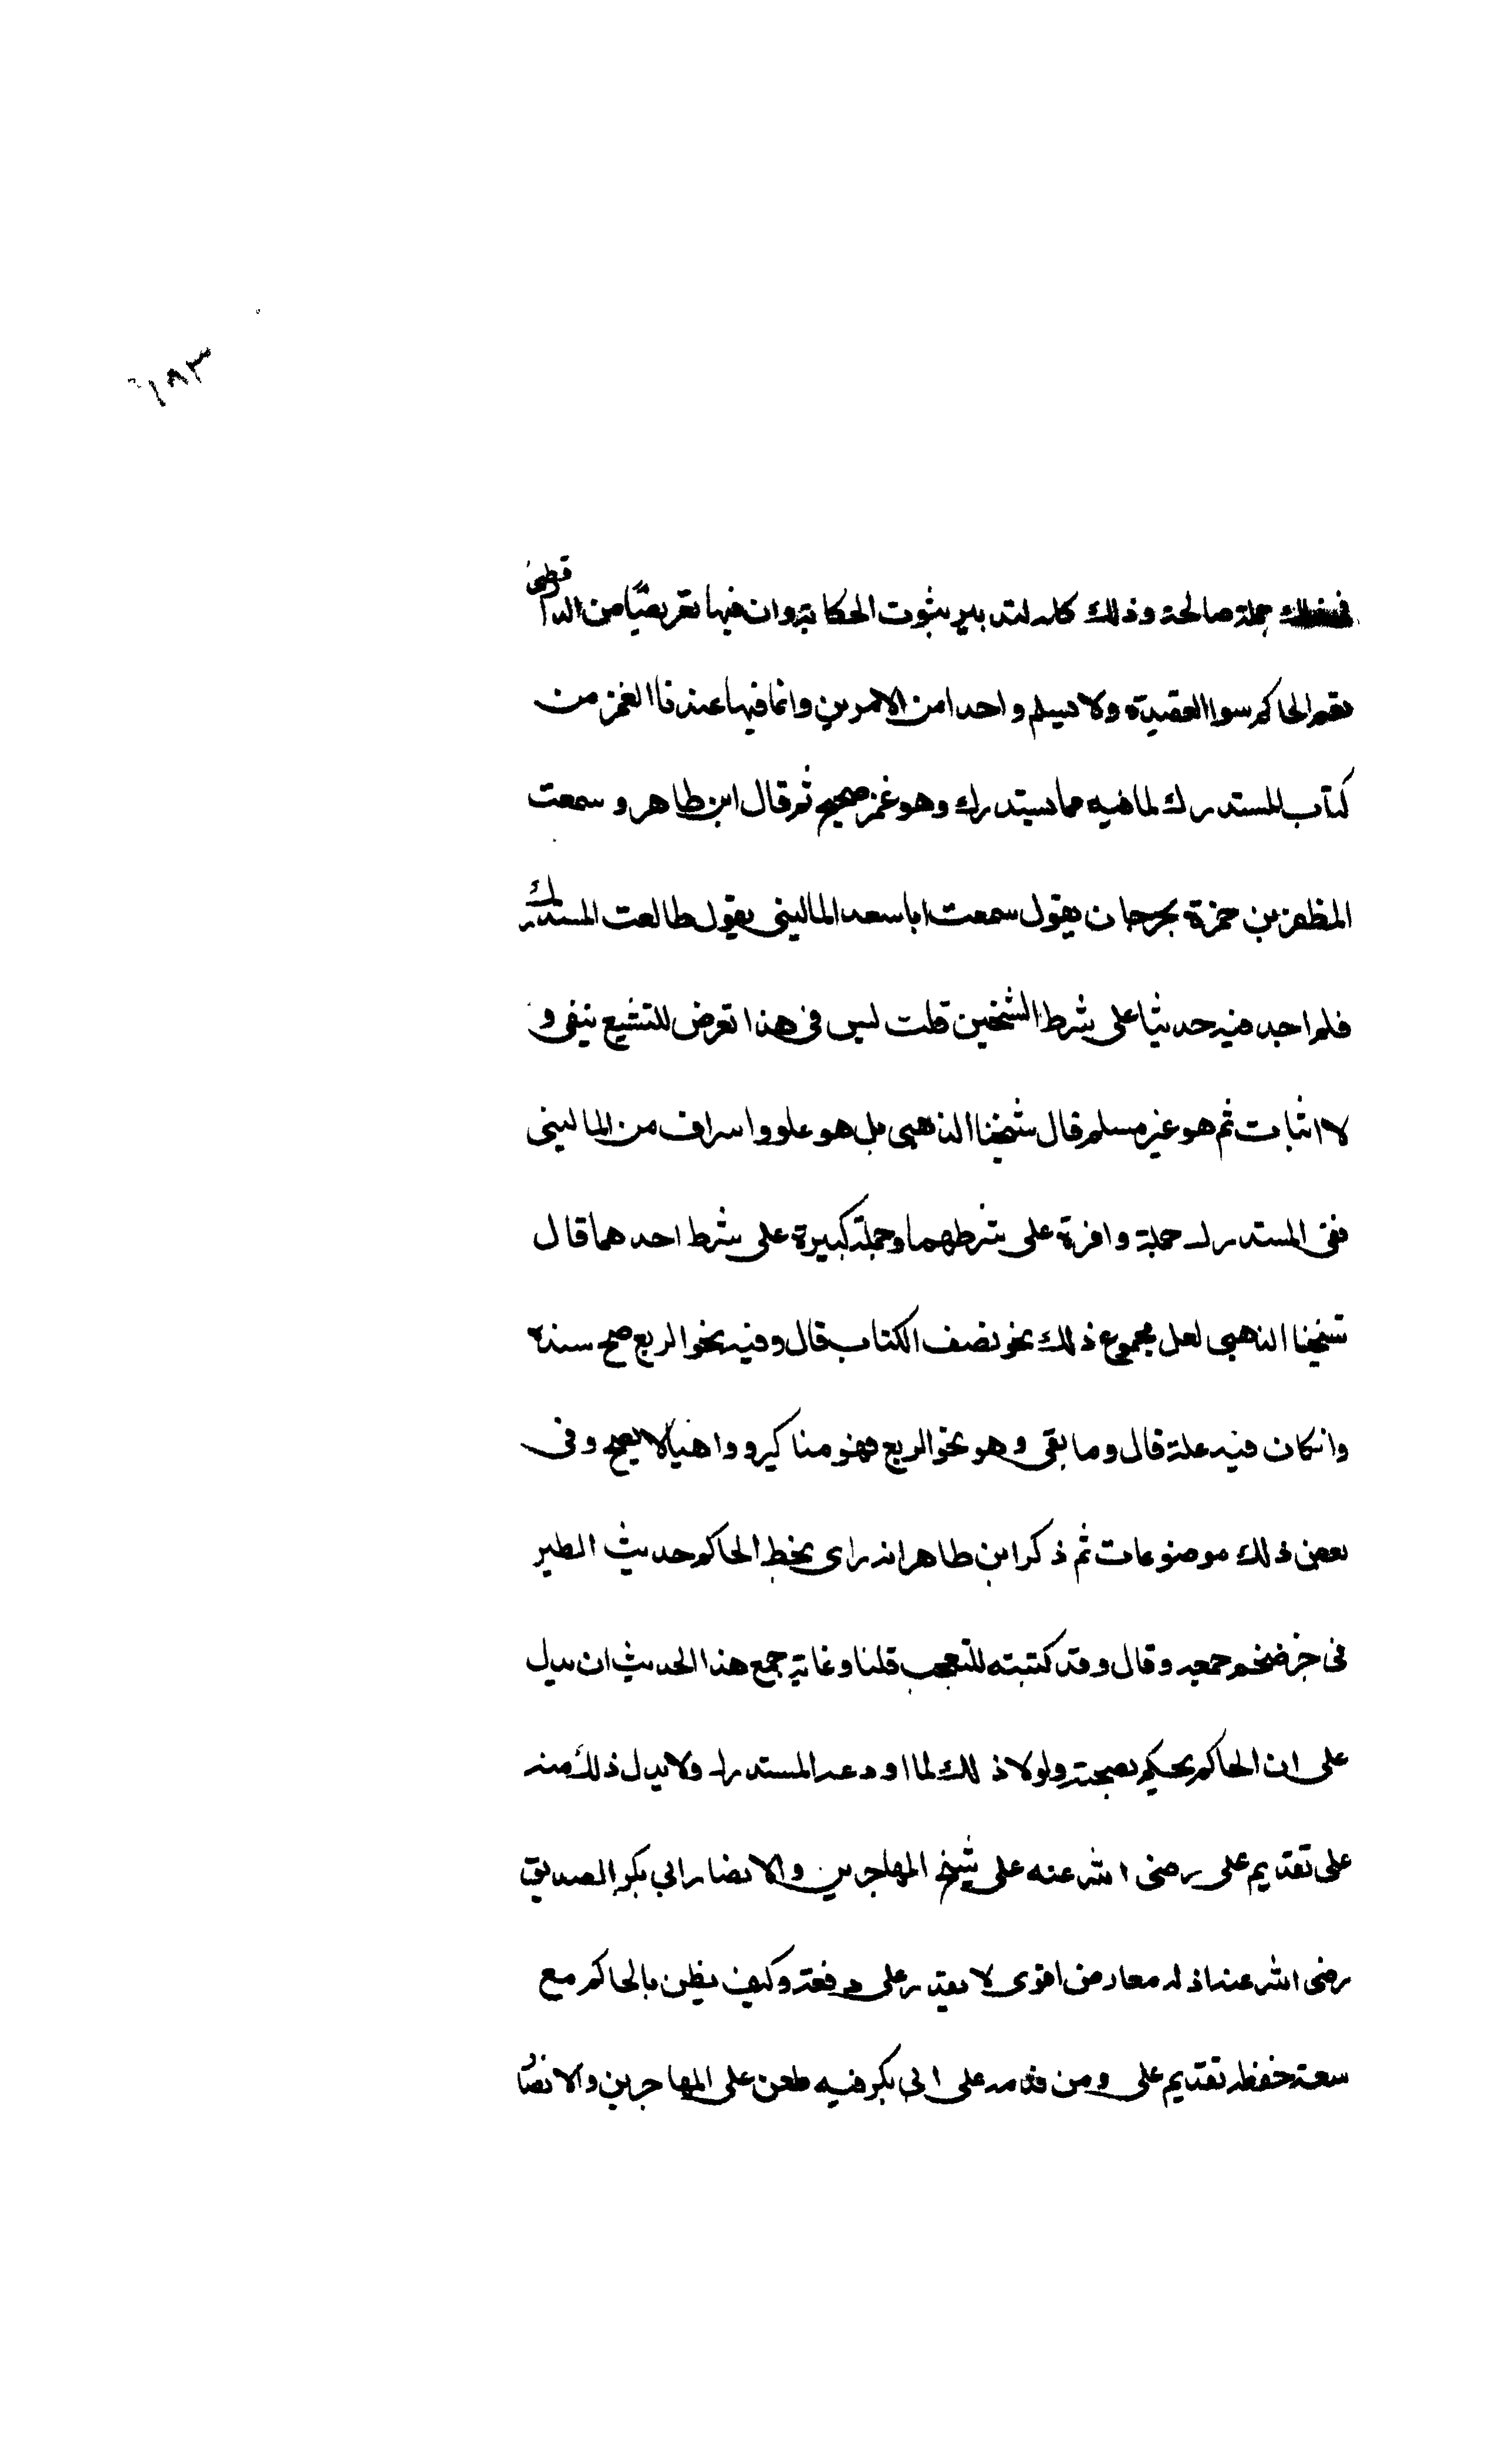 ١٨٣
في ذلك جملة صالحة وذلك كله لتدبير بثوت الحكاية وان فيها تعريضًا من الدارقطني
بغمز الحاكم سوا العقيدة ولا نسلم واحدا من الامرين وانما فيها عندنا الغمز من
كتاب المستدرك لما فيه مما يستدرك وهو غمز صحيح ثم قال ابن طاهر وسمعت
المظفر بن حمزة بجرجان يقول سمعت ابا سعد الماليني يقول طالعت المستدرك
فلم اجد فيه حديثا على شرط الشيخين قلت ليس في هذا تعرض للتشيع بنفي و
لا اثبات ثم هو غير مسلم قال شيخنا الذهبي بل هو غلو واسراف من الماليني
ففي المستدرك جملة وافرة على شرطهما وجملة كبيرة على شرط احدهما قال
شيخنا الذهبي لعل مجموع ذلك نحو نصف الكتاب قال وفيه نحو الربع صح سنده
وان كان فيه علة قال وما بقى وهو نحو الربع فهو مناكير وواهيا لا يصح وفى
بعض ذلك موضوعات ثم ذكر ابن طاهر انه راى بخط الحاكم حديث الطير
في جز ضخم جمعه وقال وقد كتبته للتعجب قلنا وغاية جمع هذا الحديث ان يدل
على ان الحاكم يحكم بصحته ولولا ذلك لما اودعه المستدرك ولا يدل ذلك منه
على تقديم على رضى الله عنه على شيخ المهاجرين والانصار ابي بكر الصديق
رضى الله عنه اذ له معارض اقوى لا يقدر على دفعه وكيف يظن بالحاكم مع
سعة حفظه تقديم على ومن قدمه على ابي بكر فيه طعن على المهاجرين والانصار